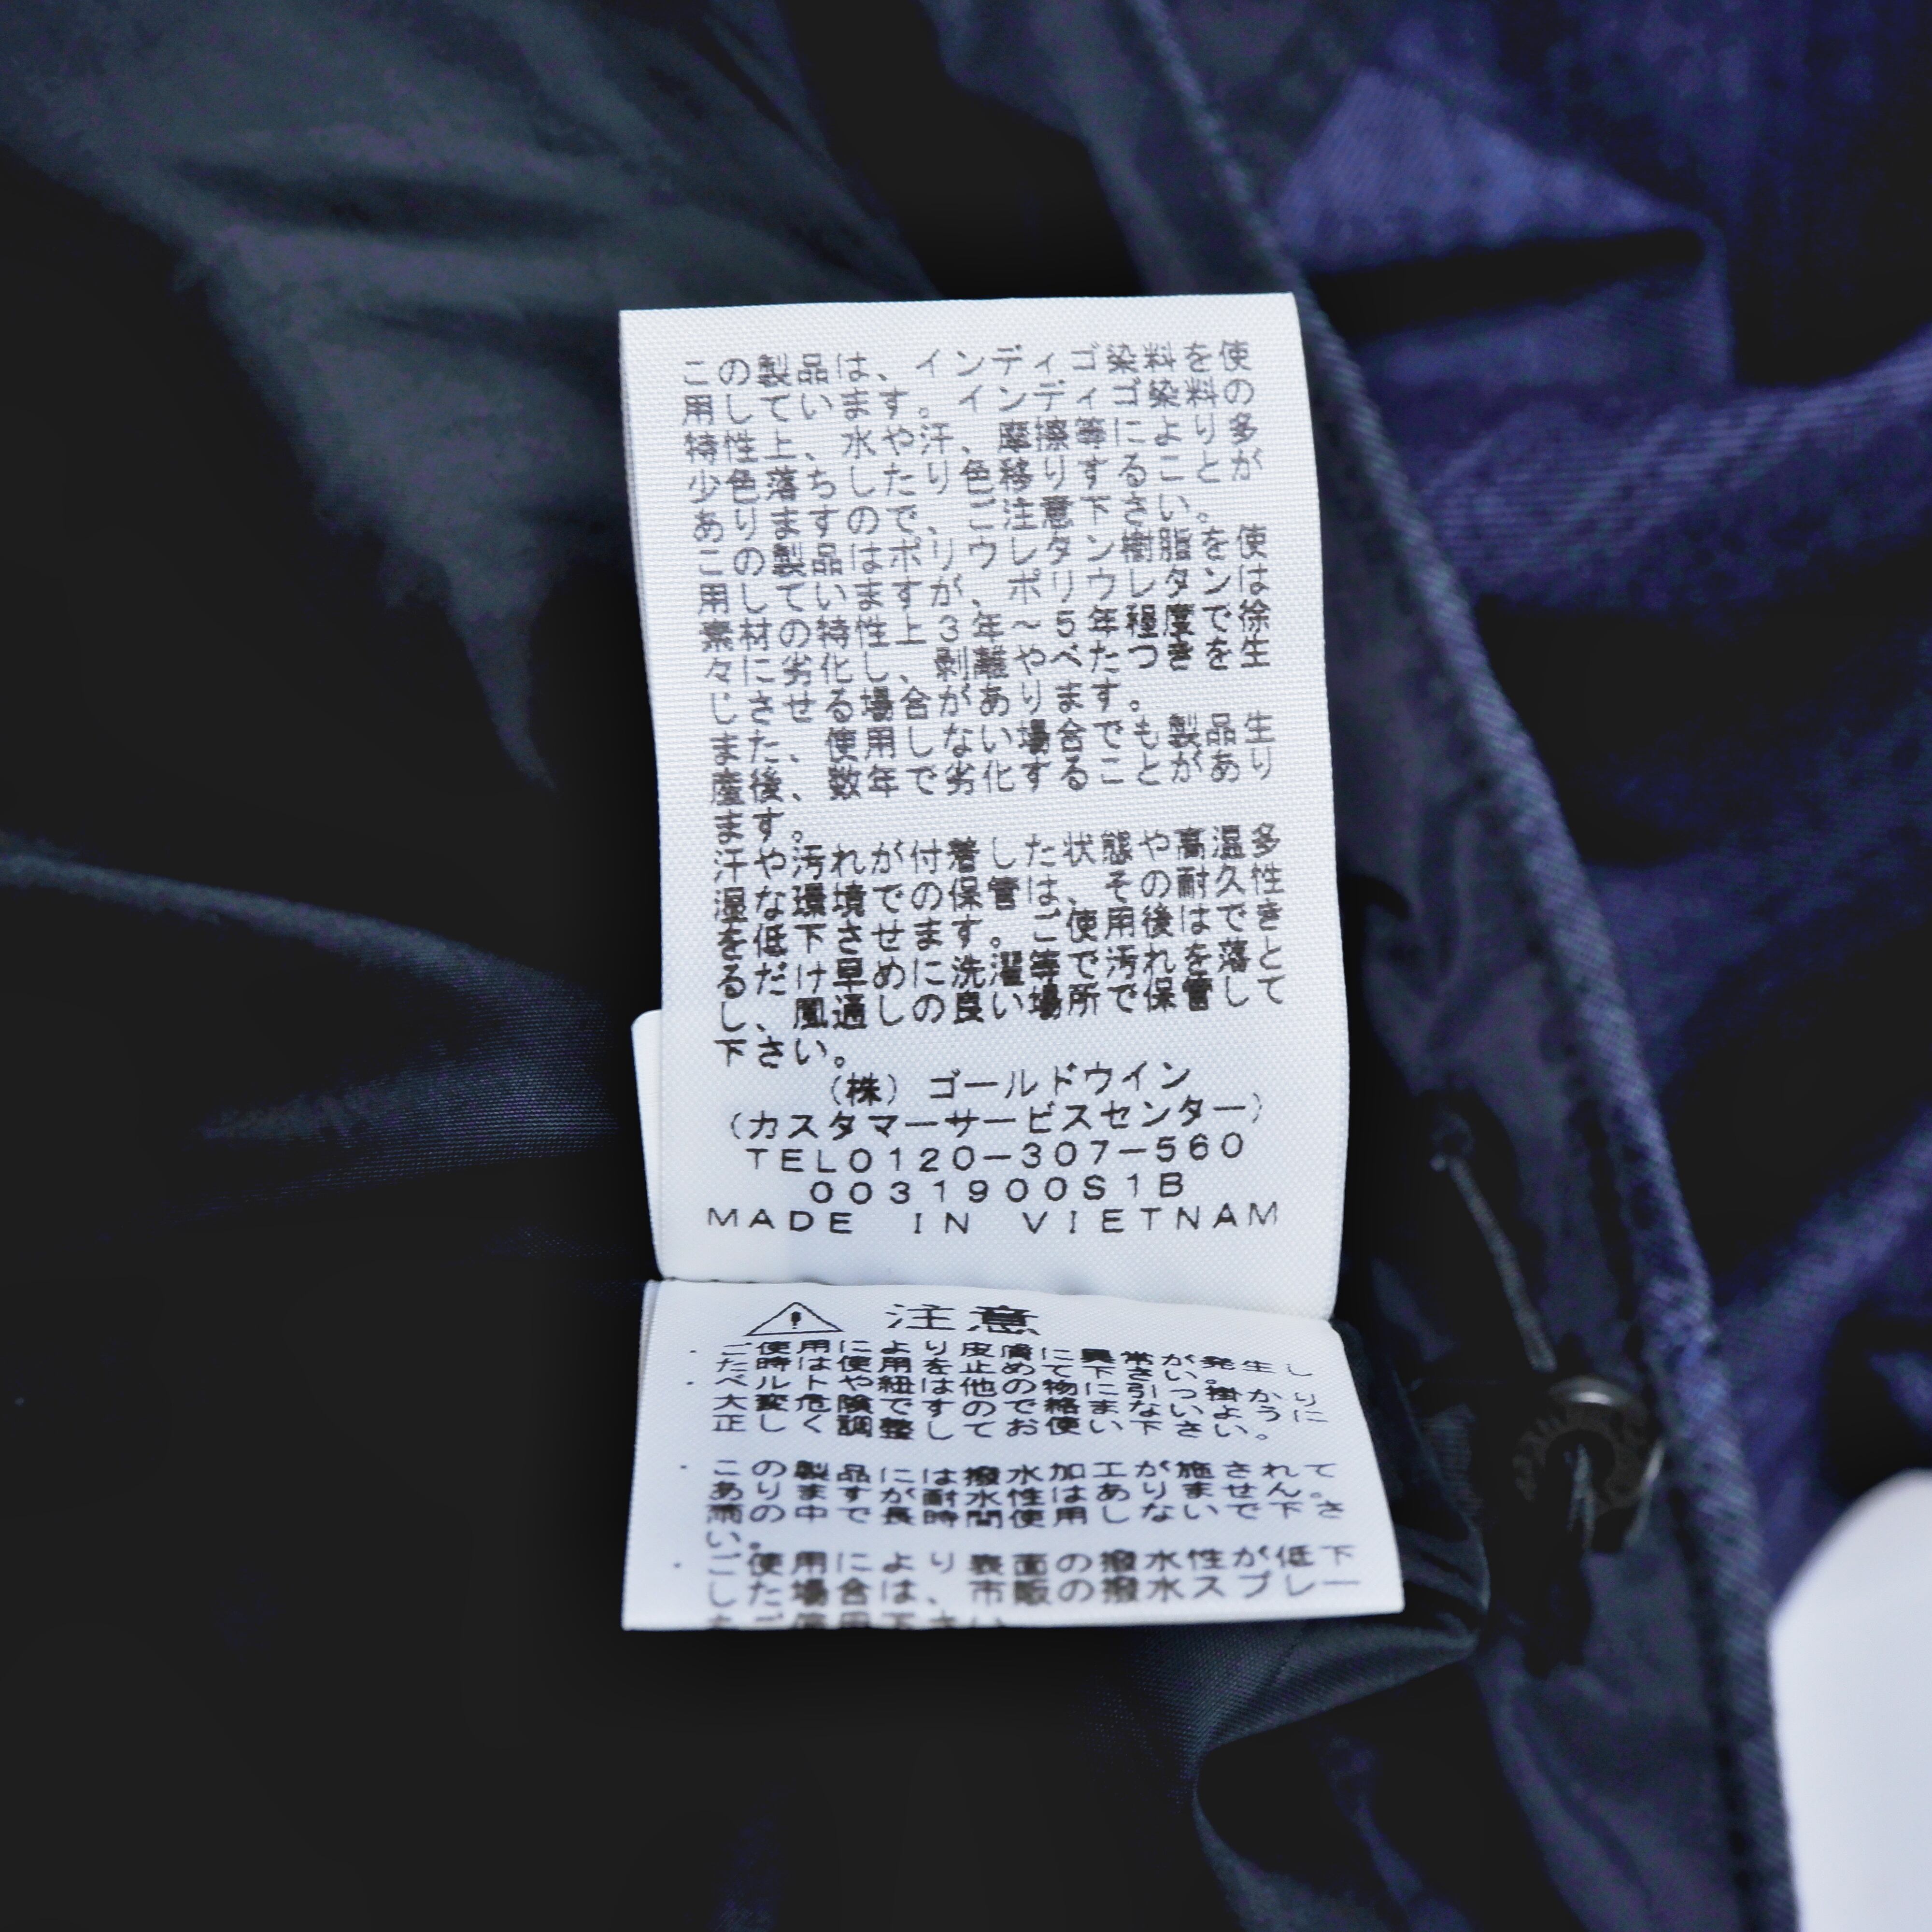 この製品は、インディゴ染料を使
用しています。インディゴ染料の
特性上、水や汗、摩擦等により多
少色落ちしたり色移りすることが
ありますので、ご注意下さい。
この製品はポリウレタン樹脂を使
用していますが、ポリウレタンは
素材の特性上3年~5年程度で徐
々に劣化し、剥離やべたつきを生
じさせる場合があります。
また、使用しない場合でも製品生
産後、数年で劣化することがあり
ます。
汗や汚れが付着した状態や高温多
湿な環境での保管は、その耐久性
を低下させます。ご使用後はでき
るだけ早めに洗濯等で汚れを落と
し、風通しの良い場所で保管して
下さい。
(株)ゴールドウイン
(カスタマーサービスセンター)
TEL0120-307-560
0031900S1B
MADE IN VIETNAM
注意
・ご使用により皮膚に異常が発生し
た時は使用を止めて下さい。
・ベルトや紐は他の物に引っ掛かり
大変危険ですので絡まないように
正しく調整してお使い下さい。
・この製品には撥水加工が施されて
ありますが耐水性はありません。
雨の中で長時間使用しないで下さ
い。
・ご使用により表面の撥水性が低下
した場合は、市販の撥水スプレー
をご使用下さい